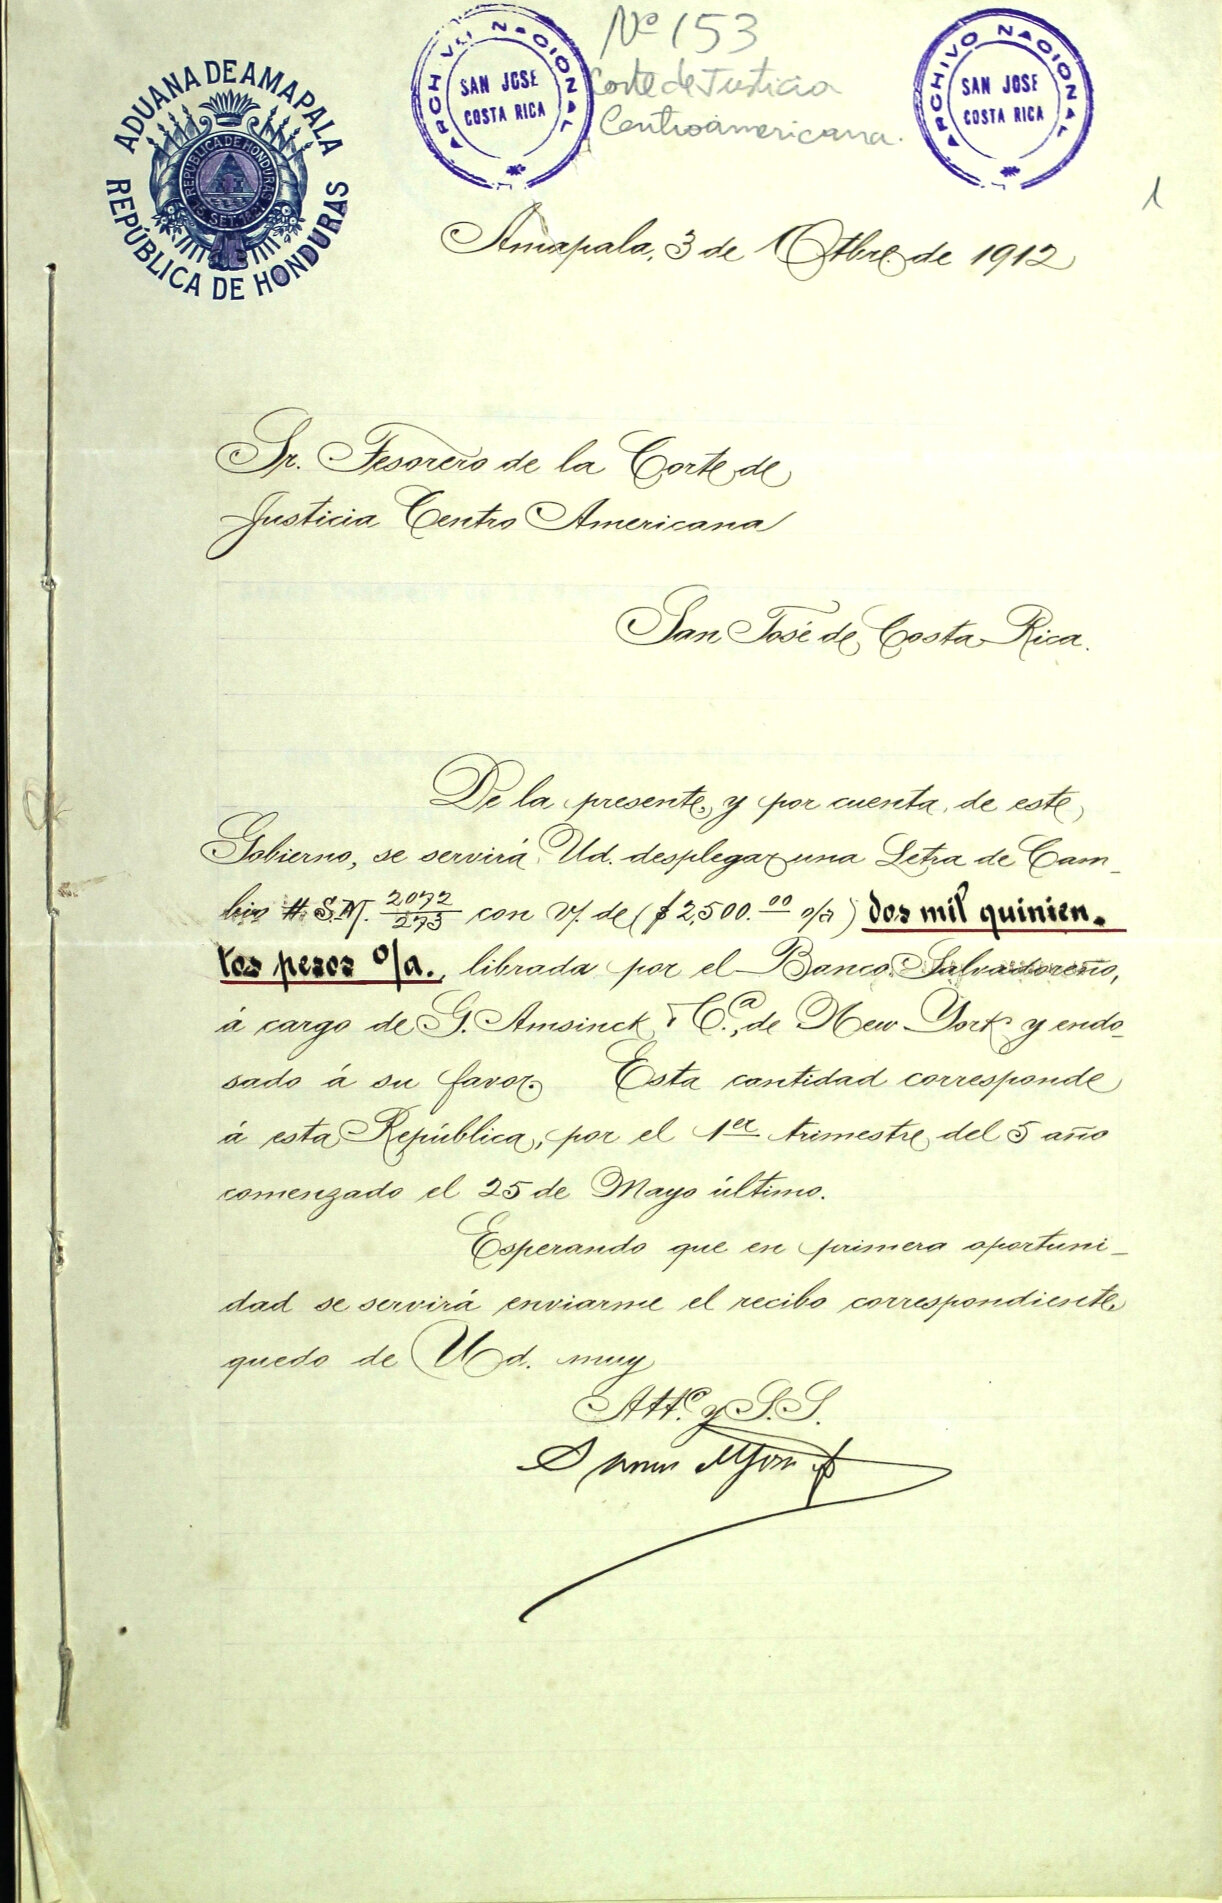 ADUANA DE AMAPALA
REPÚBLICA DE HONDURAS
REPUBLICA DE HONDURAS
ARCHIVO NACIONAL
SAN JOSE
COSTA RICA
Nº 153
Corte de Justicia
Centroamericana.
ARCHIVO NACIONAL
SAN JOSE
COSTA RICA
1
Amapala, 3 de Otbre. de 1912
Sr. Tesorero de la Corte de
Justicia Centro Americana
San José de Costa Rica.
De la presente, y por cuenta de este
Gobierno, se servirá Ud. desplegar una Letra de Cam-
bio # S.M. 2072/273 con v/. de ($2,500.00 o/a) dos mil quinien-
tos pesos o/a., librada por el Banco Salvadoreño,
á cargo de G. Amsinck & C.a, de New York y endo-
sado á su favor. Esta cantidad corresponde
á esta República, por el 1er trimestre del 5 año
comenzado el 25 de Mayo último.
Esperando que en primera oportuni-
dad se servirá enviarme el recibo correspondiente,
quedo de Ud. muy
Atto. y S.S.